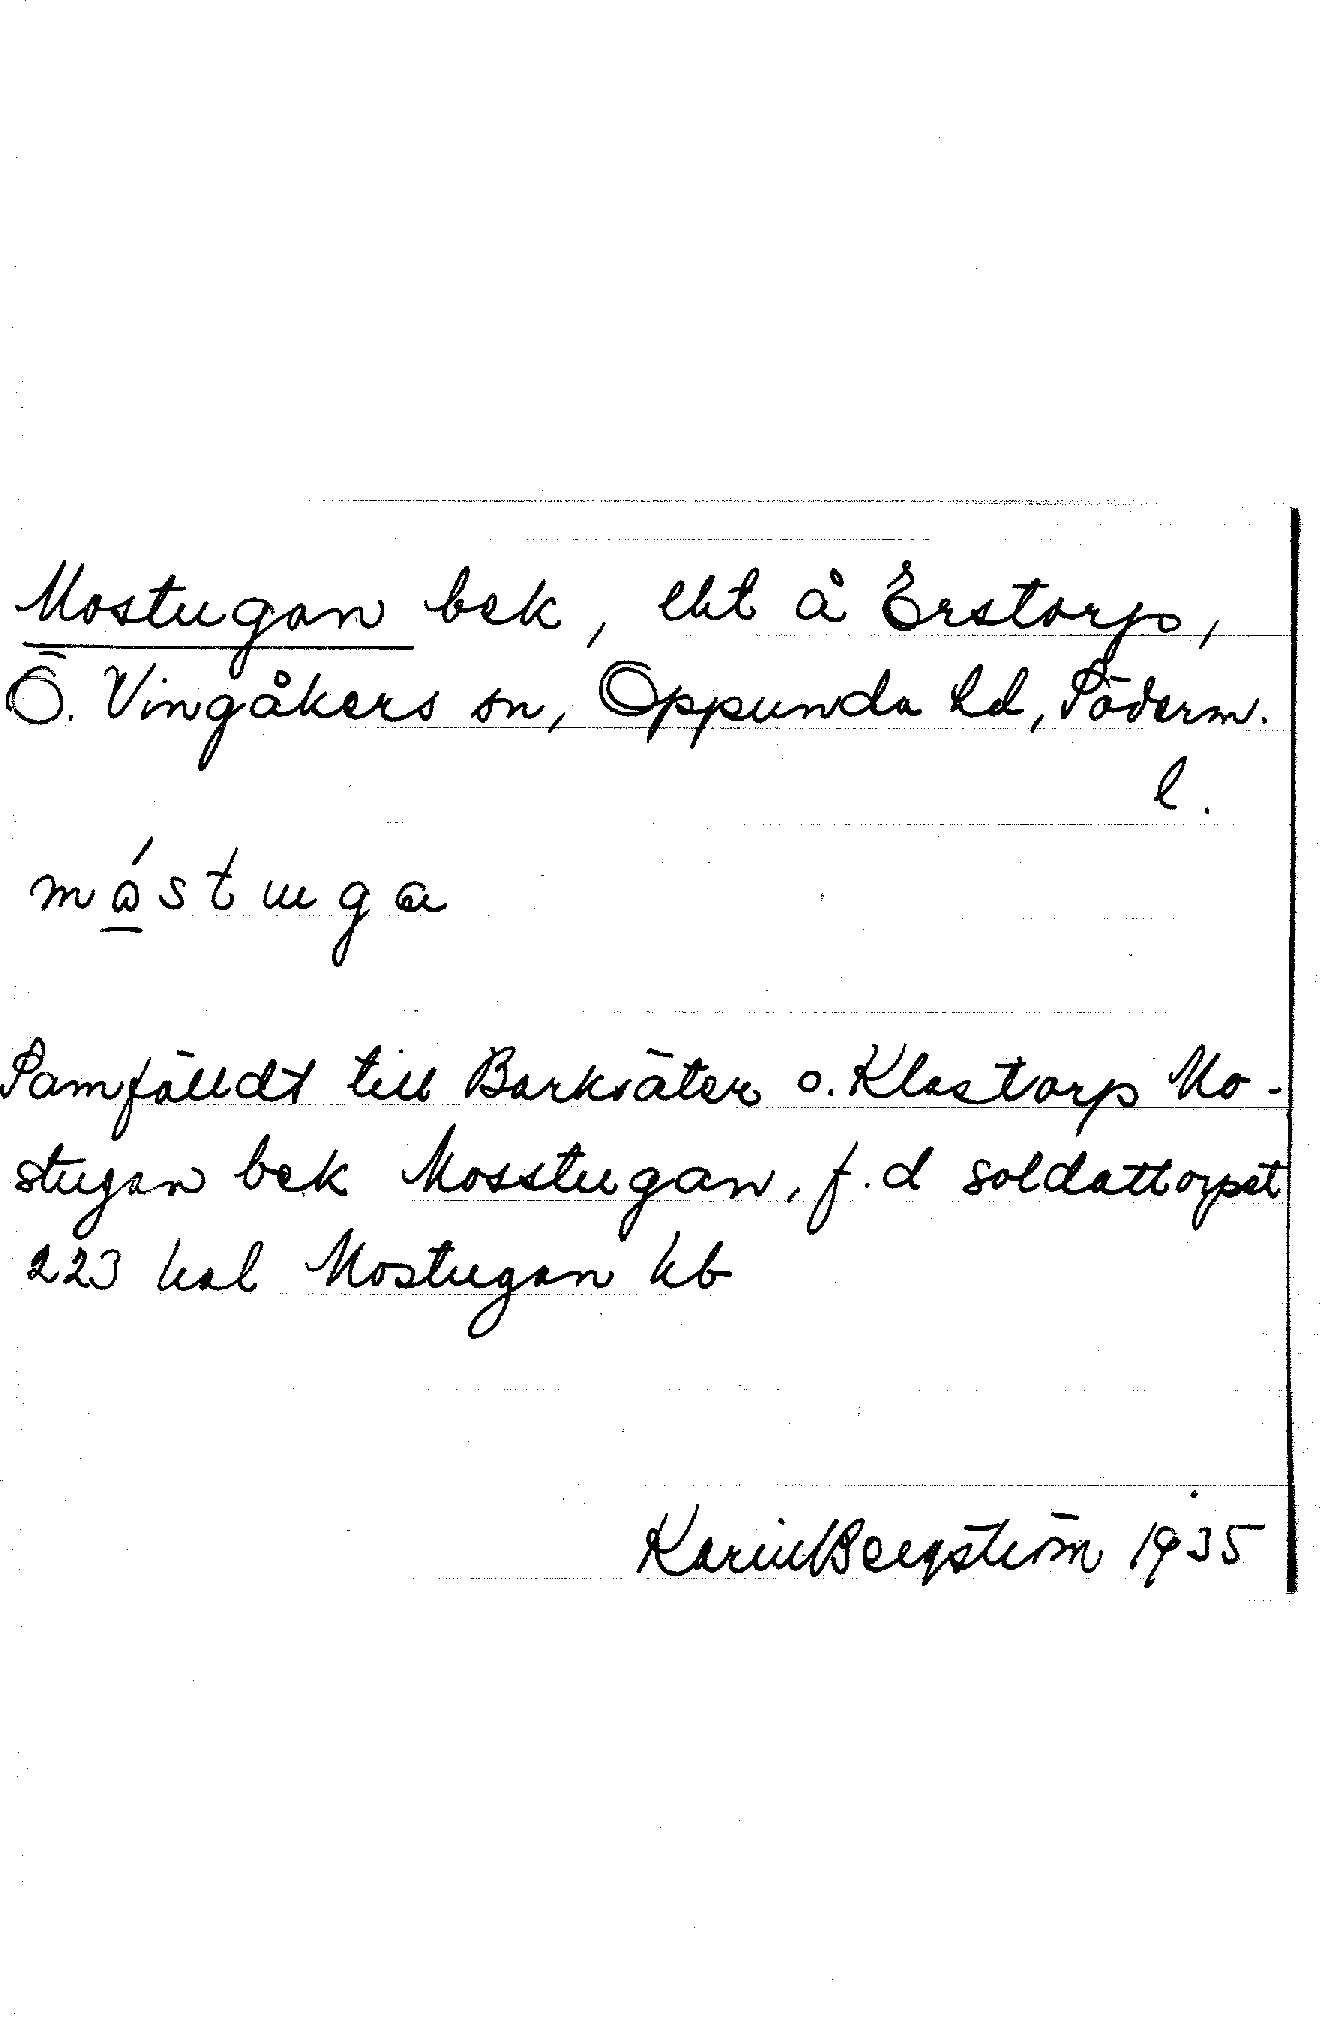 Mostugan bek, ekt å Erstorp,
Ö. Vingåkers sn, Oppunda hd, Söderm.
l.
måstuga
Samfälldt till Barksäter o. Klastorp Mo-
stugan bek Mosstugan, f.d soldattorpet
223 hal Mostugan kb
Karin Bergström 1935